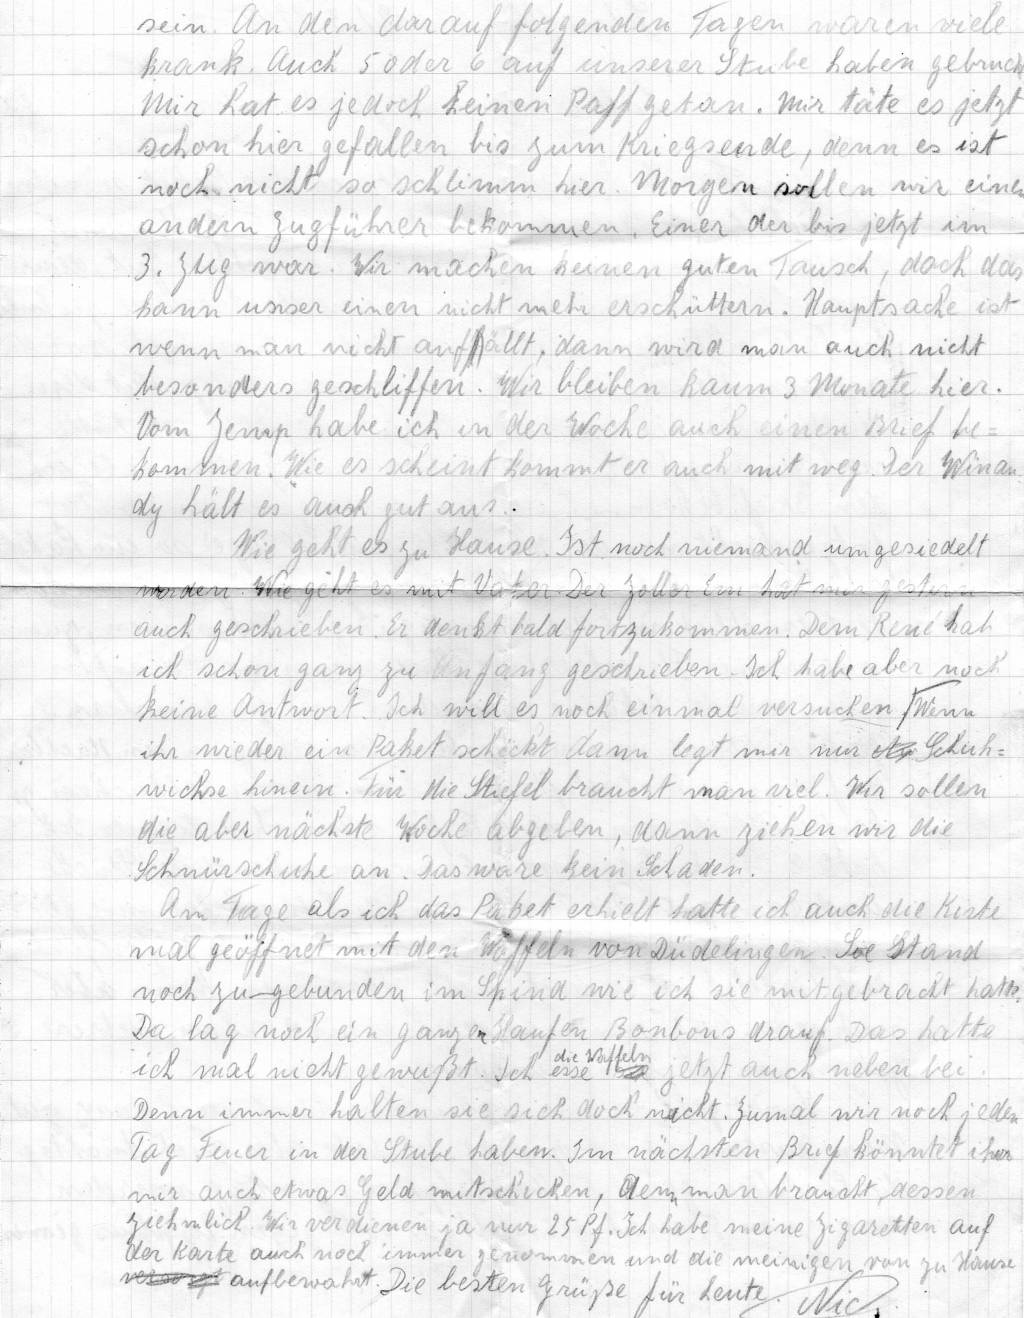 sein. An den darauf folgenden Tagen waren viele
krank. Auch 5 oder 6 auf unserer Stube haben gebruch
Mir hat es jedoch keinen Paff getan. Mir täte es jetzt
schon hier gefallen bis zum Kriegsende, denn es ist
noch nicht so schlimm hier. Morgen sollen wir einen
andern Zugführer bekommen. Einer der bis jetzt im
3. Zug war. Wir machen keinen guten Tausch, doch das
kann unser einen nicht mehr erschüttern. Hauptsache ist
wenn man nicht auffällt, dann wird man auch nicht
besonders geschliffen. Wir bleiben kaum 3 Monate hier.
Vom Jemp habe ich in der Woche auch einen Brief be=
kommen. Wie es scheint kommt er auch mit weg. Der Winan
dy hält es auch gut aus.
Wie geht es zu Hause. Ist noch niemand umgesiedelt
worden. Wie geht es mit Vater. Der Zoller Em hat mir gestern
auch geschrieben. Er denkt bald fortzukommen. Dem René hab
ich schon ganz zu Anfang geschrieben. Ich habe aber noch
keine Antwort. Ich will es noch einmal versuchen. Wenn
ihr wieder ein Paket schickt dann legt mir nur Schuh=
wichse hinein. Für die Stiefel braucht man viel. Wir sollen
die aber nächste Woche abgeben, dann ziehen wir die
Schnürschuhe an. Das wäre kein Schaden.
Am Tage als ich das Paket erhielt hatte ich auch die Kiste
mal geöffnet mit den Waffeln von Düdelingen. Sie Stand
noch zu-gebunden im Spind wie ich sie mitgebracht hatte.
Da lag noch ein ganzen Haufen Bonbons drauf. Das hatte
ich mal nicht gewußt. Ich esse die Waffeln jetzt auch neben bei.
Denn immer halten sie sich doch nicht. Zumal wir noch jeden
Tag Feuer in der Stube haben. Im nächsten Brief könntet ihr
mir auch etwas Geld mitschicken, denn man braucht dessen
ziehmlich. Wir verdienen ja nur 25 Pf. Ich habe meine Zigaretten auf
der Karte auch noch immer genommen und die meinigen von zu Hause
aufbewahrt. Die besten Grüße für heute. Nic.